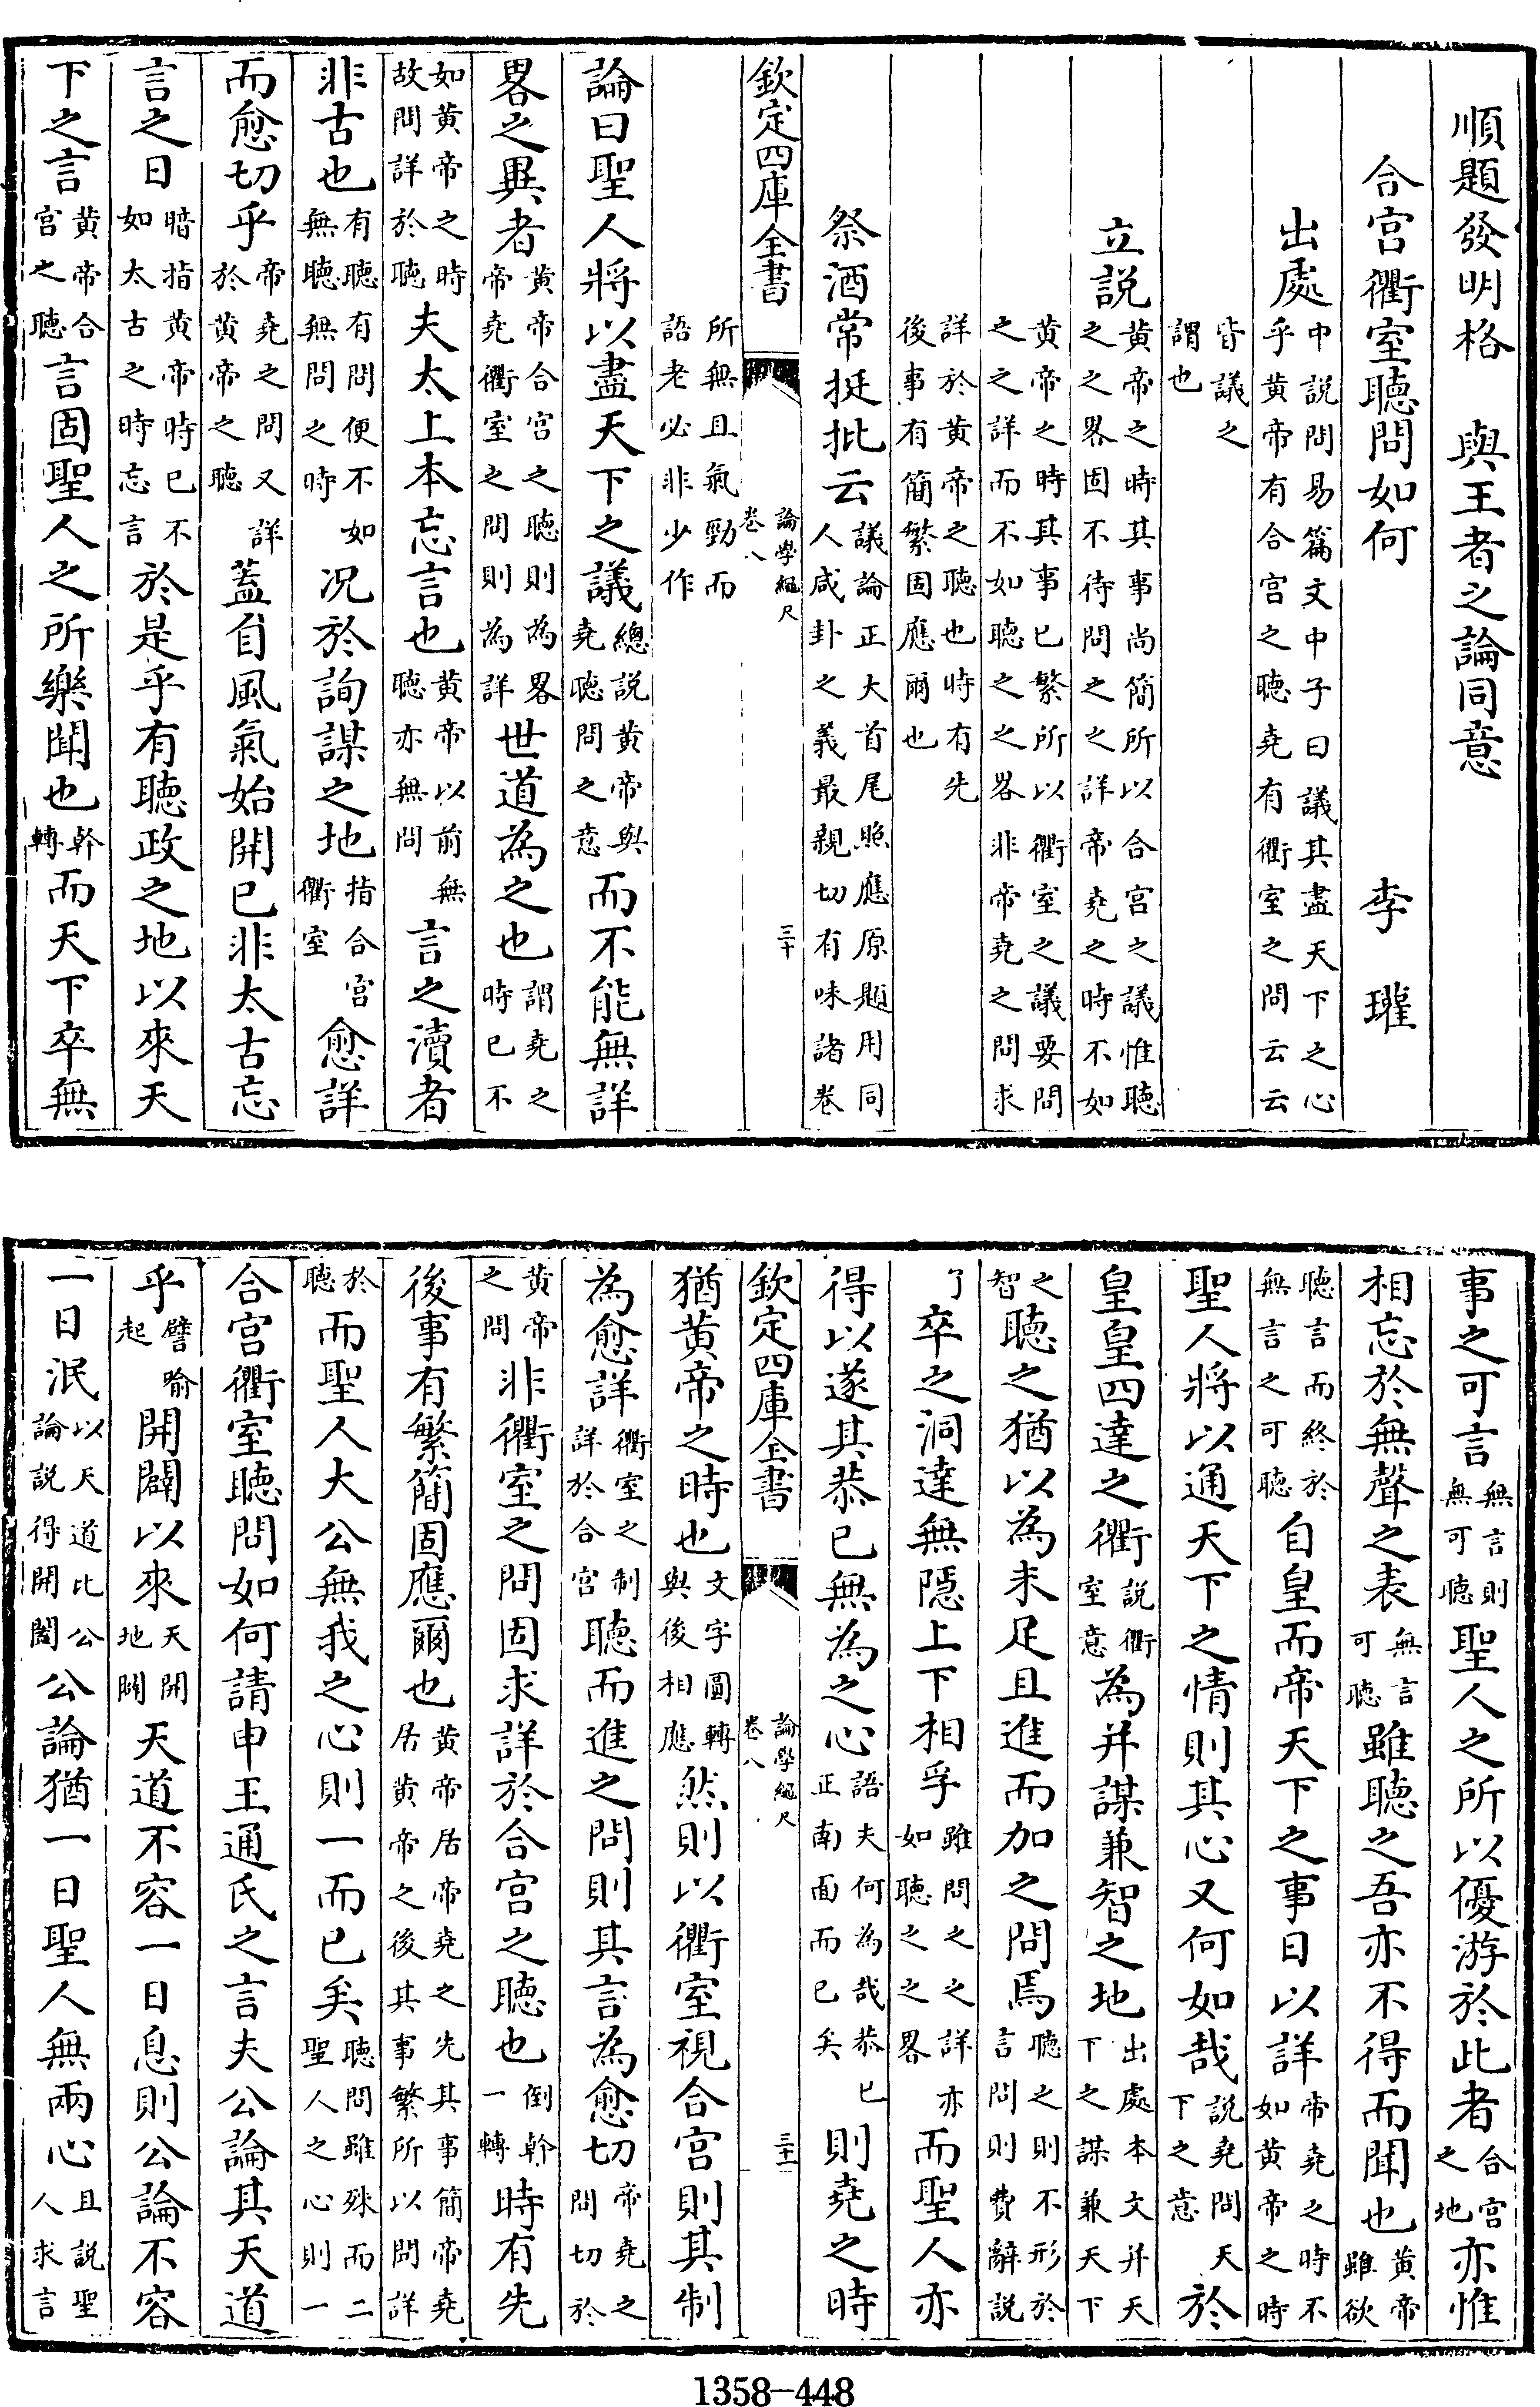 順題發明格　與王者之論同意
合宮衢室聽問如何　李瓘
出處中說問易篇文中子曰議其盡天下之心乎黃帝有合宮之聽堯有衢室之問云云
皆議之謂也
立說黃帝之時其事尚簡所以合宮之議惟聽之之畧固不待問之之詳帝堯之時不如
黃帝之時其事已繁所以衢室之議要問之之詳而不如聽之之畧非帝堯之問求
詳於黃帝之聽也時有先後事有簡繁固應爾也
祭酒常挺批云議論正大首尾照應原題用同人咸卦之義最親切有味諸卷
欽定四庫全書　論學繩尺卷八　三十
所無且氣勁而語老必非少作
論曰聖人將以盡天下之議總說黃帝與堯聽問之意而不能無詳
畧之異者黃帝合宮之聽則為畧帝堯衢室之問則為詳世道為之也謂堯之時已不
如黃帝之時故問詳於聽夫太上本忘言也黃帝以前無聽亦無問言之瀆者
非古也有聽有問便不如無聽無問之時况於詢謀之地指合宮衢室愈詳
而愈切乎帝堯之問又詳於黃帝之聽蓋自風氣始開已非太古忘
言之日暗指黃帝時已不如太古之時忘言於是乎有聽政之地以來天
下之言黃帝合宮之聽言固聖人之所樂聞也斡轉而天下卒無
事之可言無言則無可聽聖人之所以優游於此者合宮之地亦惟
相忘於無聲之表無言可聽雖聽之吾亦不得而聞也黃帝雖欲
聽言而終於無言之可聽自皇而帝天下之事日以詳帝堯之時不如黃帝之時
聖人將以通天下之情則其心又何如哉說堯問天下之意於
皇皇四達之衢說衢室意為并謀兼智之地出處本文并天下之謀兼天下
之智聽之猶以為未足且進而加之問焉聽之則不形於言問則費辭說
了卒之洞達無隱上下相孚雖問之之詳亦如聽之之畧而聖人亦
得以遂其恭已無為之心語夫何為哉恭已正南面而已矣則堯之時
欽定四庫全書　論學繩尺卷八　三十一
猶黃帝之時也文字圓轉與後相應然則以衢室視合宮則其制
為愈詳衢室之制詳於合宮聽而進之問則其言為愈切帝堯之問切於
黃帝之問非衢室之問固求詳於合宮之聽也倒斡一轉時有先
後事有繁簡固應爾也黃帝居帝堯之先其事簡帝堯居黃帝之後其事繁所以問詳
於聽而聖人大公無我之心則一而已矣聽問雖殊而二聖人之心則一
合宮衢室聽問如何請申王通氏之言夫公論其天道
乎譬喻起開闢以來天開地闢天道不容一日息則公論不容
一日泯以天道比公論說得開闊公論猶一日聖人無兩心且說聖人求言
1358-448